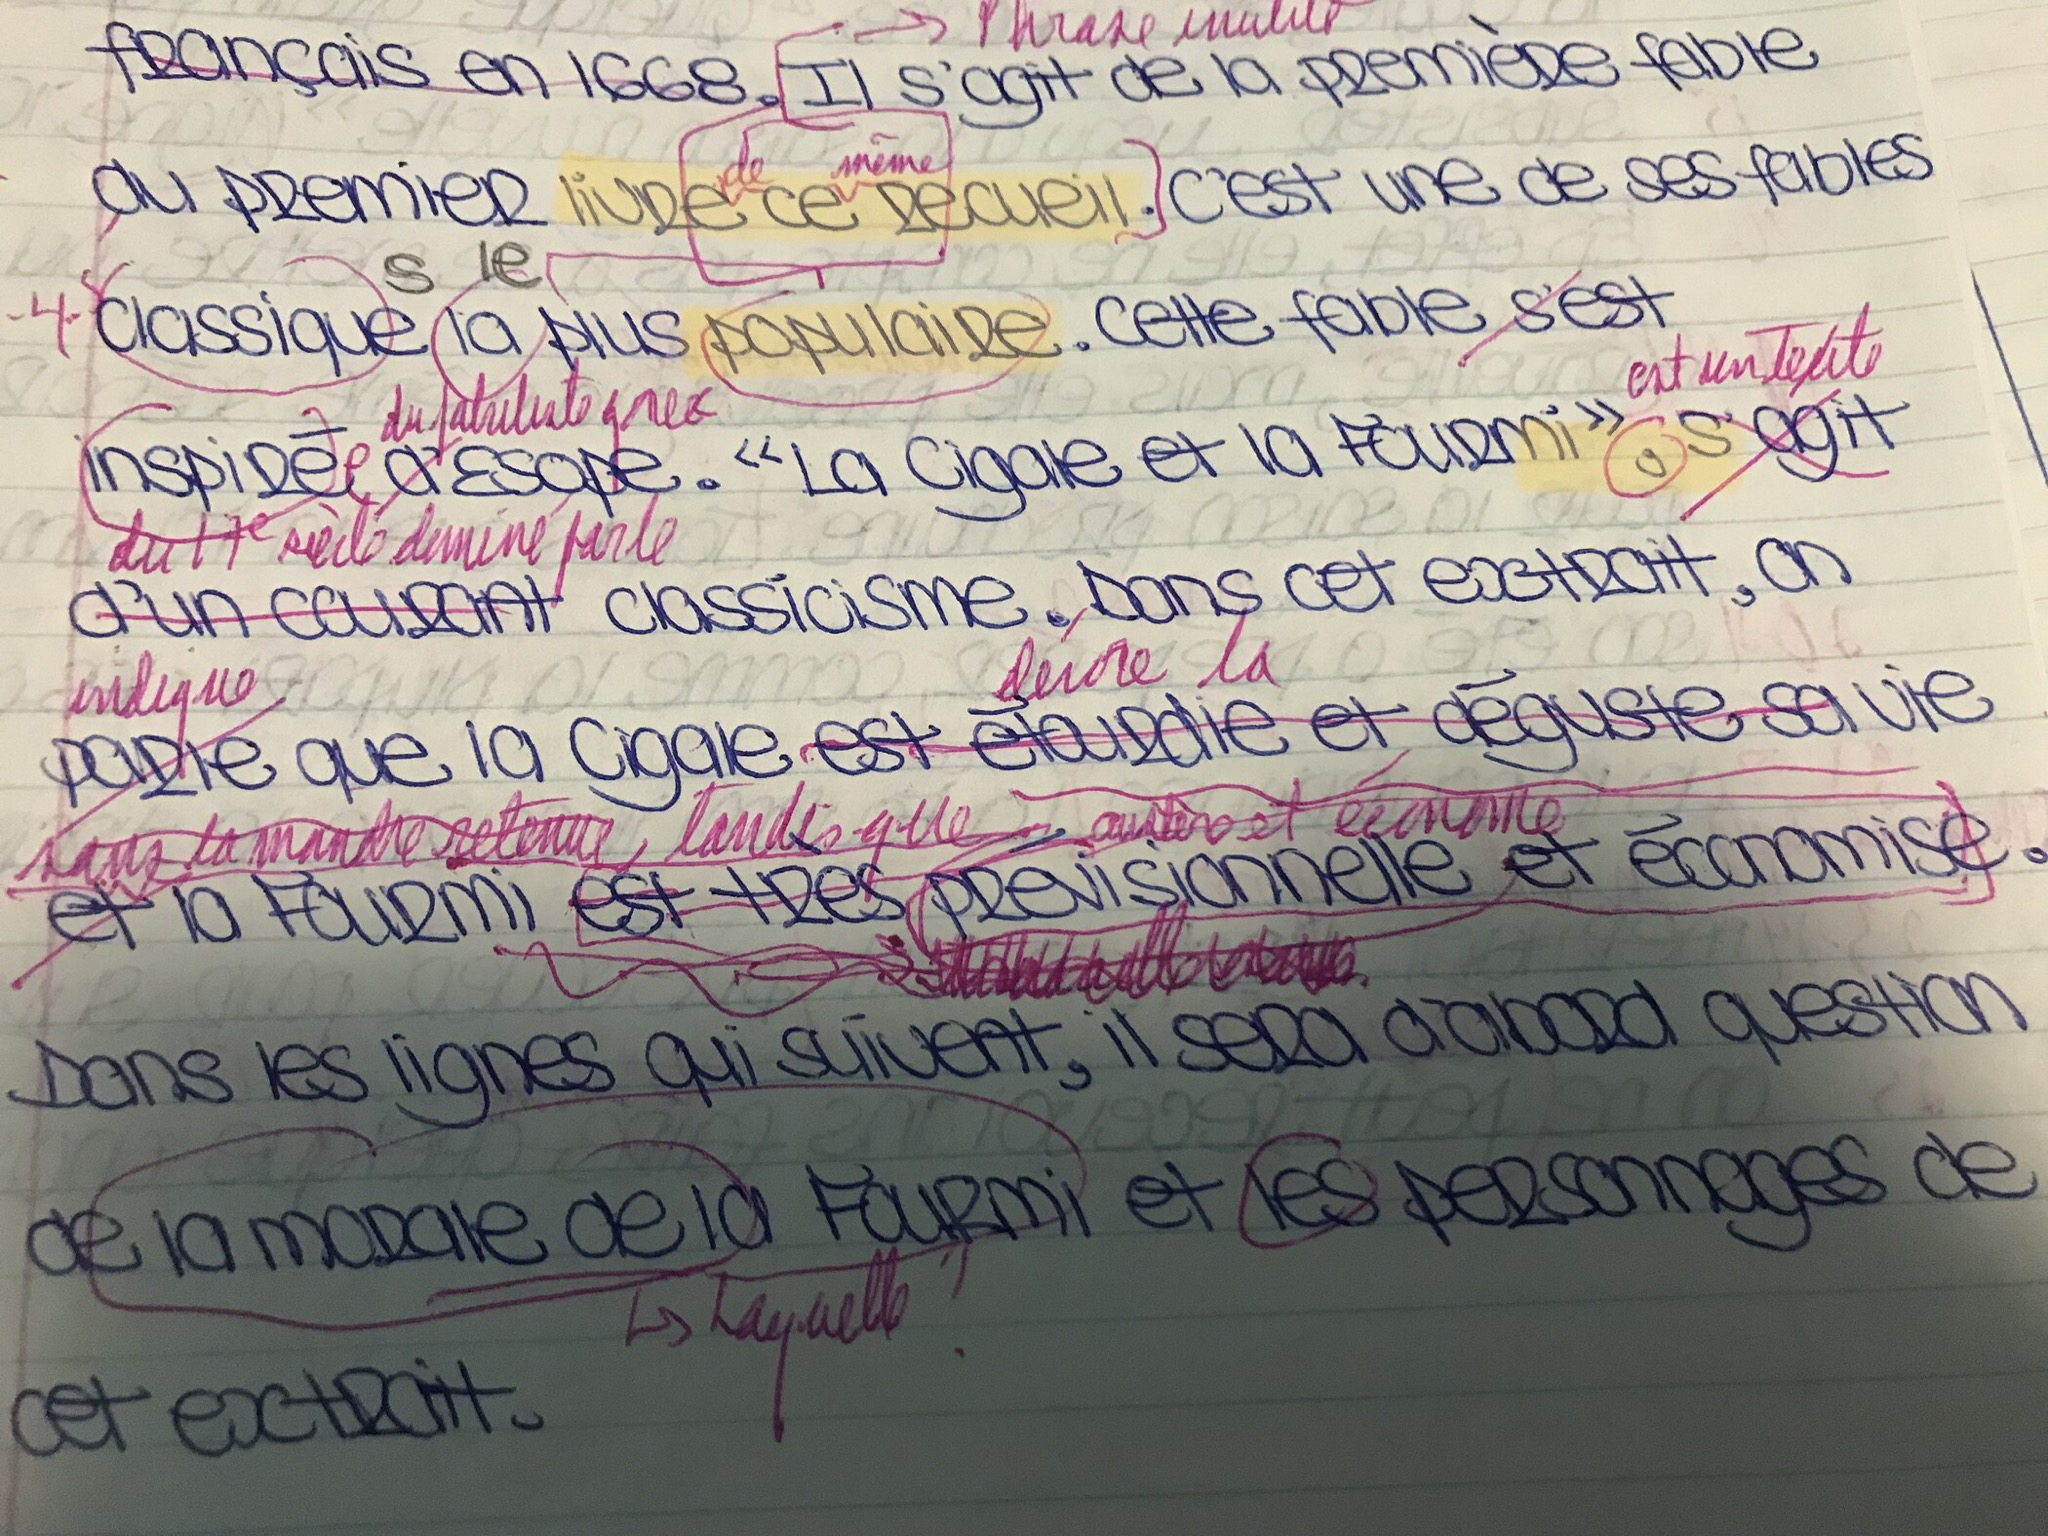 → Phrase inutile
français en 1668. Il s'agit de la première fable
de même
du premier livre ce recueil. C'est une de ses fables
s le
-4- classique la plus populaire. Cette fable s'est
est un texte
du fabuliste grec
inspirée d'Esope. «La Cigale et la Fourmi», s'agit
du 17e siècle dominé par le
d'un courant classicisme. Dans cet extrait, on
indique dévore la
parle que la Cigale est étourdie et déguste sa vie
sans la moindre retenue, tandis que austère et économe
et la Fourmi est très prévisionnelle et économise.
Dans les lignes qui suivent, il sera d'abord question
de la morale de la Fourmi et les personnages de
↳ Laquelle ?
cet extrait.